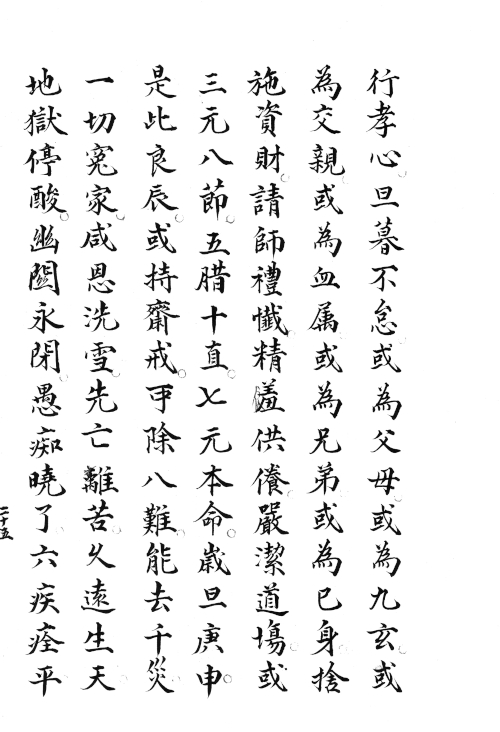 行孝心旦暮不怠或為父母或為九玄或
為交親或為血属或為兄弟或為己身捨
施資財請師禮懺精羞供養嚴潔道塲或
三元八節五腊十直七元本命歲旦庚申
是此良辰或持齋戒可除八難能去千災
一切寃家咸恩洗雪先亡離苦久遠生天
地獄停酸幽關永閉愚痴曉了六疾痊平
二十五